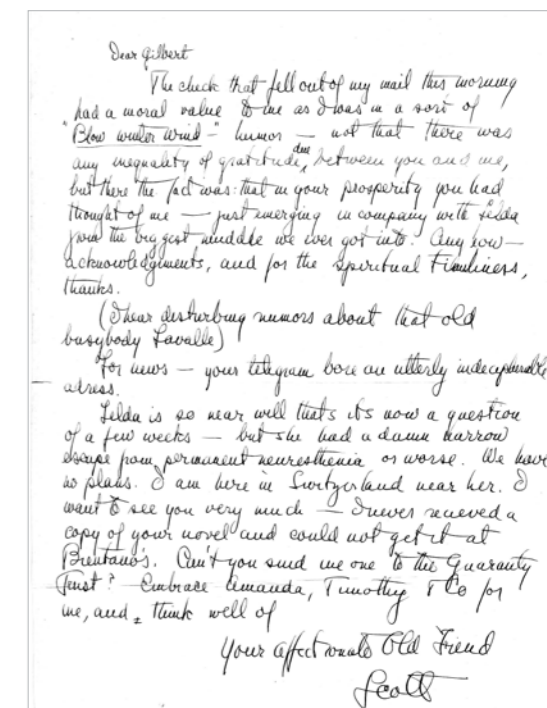 Dear Gilbert
The check that fell out of my mail this morning
had a moral value to me as I was in a sort of
"Blow winter wind-" humor — not that there was
any inequality of gratitude, due between you and me,
but there the fact was: that in your prosperity you had
thought of me — just emerging in company with Zelda
from the biggest muddle we ever got into. Any how—
acknowledgments, and for the spiritual Timliness,
thanks.
(I hear disturbing rumors about that old
busybody Lavalle)
For news — your telegram bore an utterly indecipherable
adress.
Zelda is so near well thats its now a question
of a few weeks — but she had a damn narrow
escape from permanent neuresthenia or worse. We have
no plans. I am here in Switzerland near her. I
want to see you very much — I never recieved a
copy of your novel and could not get it at
Brentano's. Can't you send me one to the Guaranty
Trust? Embrace Amanda, Timothy & Co for
me, and think well of
Your affectionate Old Friend
Scott